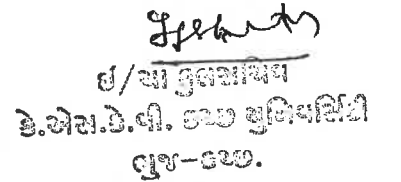 ઈ/ચા કુલસચિવ
કે.એસ.કે.વી. કચ્છ યુનિવર્સિટી
ભુજ-કચ્છ.